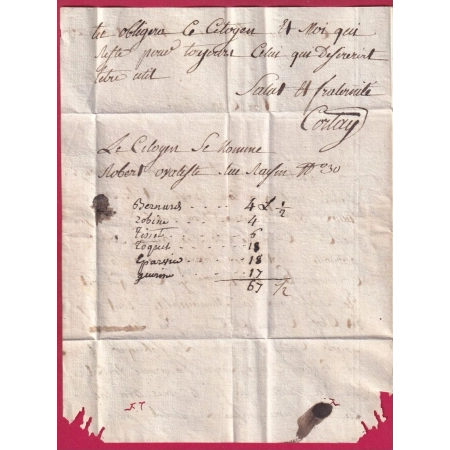 tu obligera ce Citoyen Et Moi, qui
Reste pour toujours Celui qui Desirerait
être util
Salut Et fraternité
Cortay
Le Citoyen Se nomme
Robert rue No 30
Bernard 4 L ½
Robin 4
Tissot 6
Toquet 18
18
guerin 17
67 ½